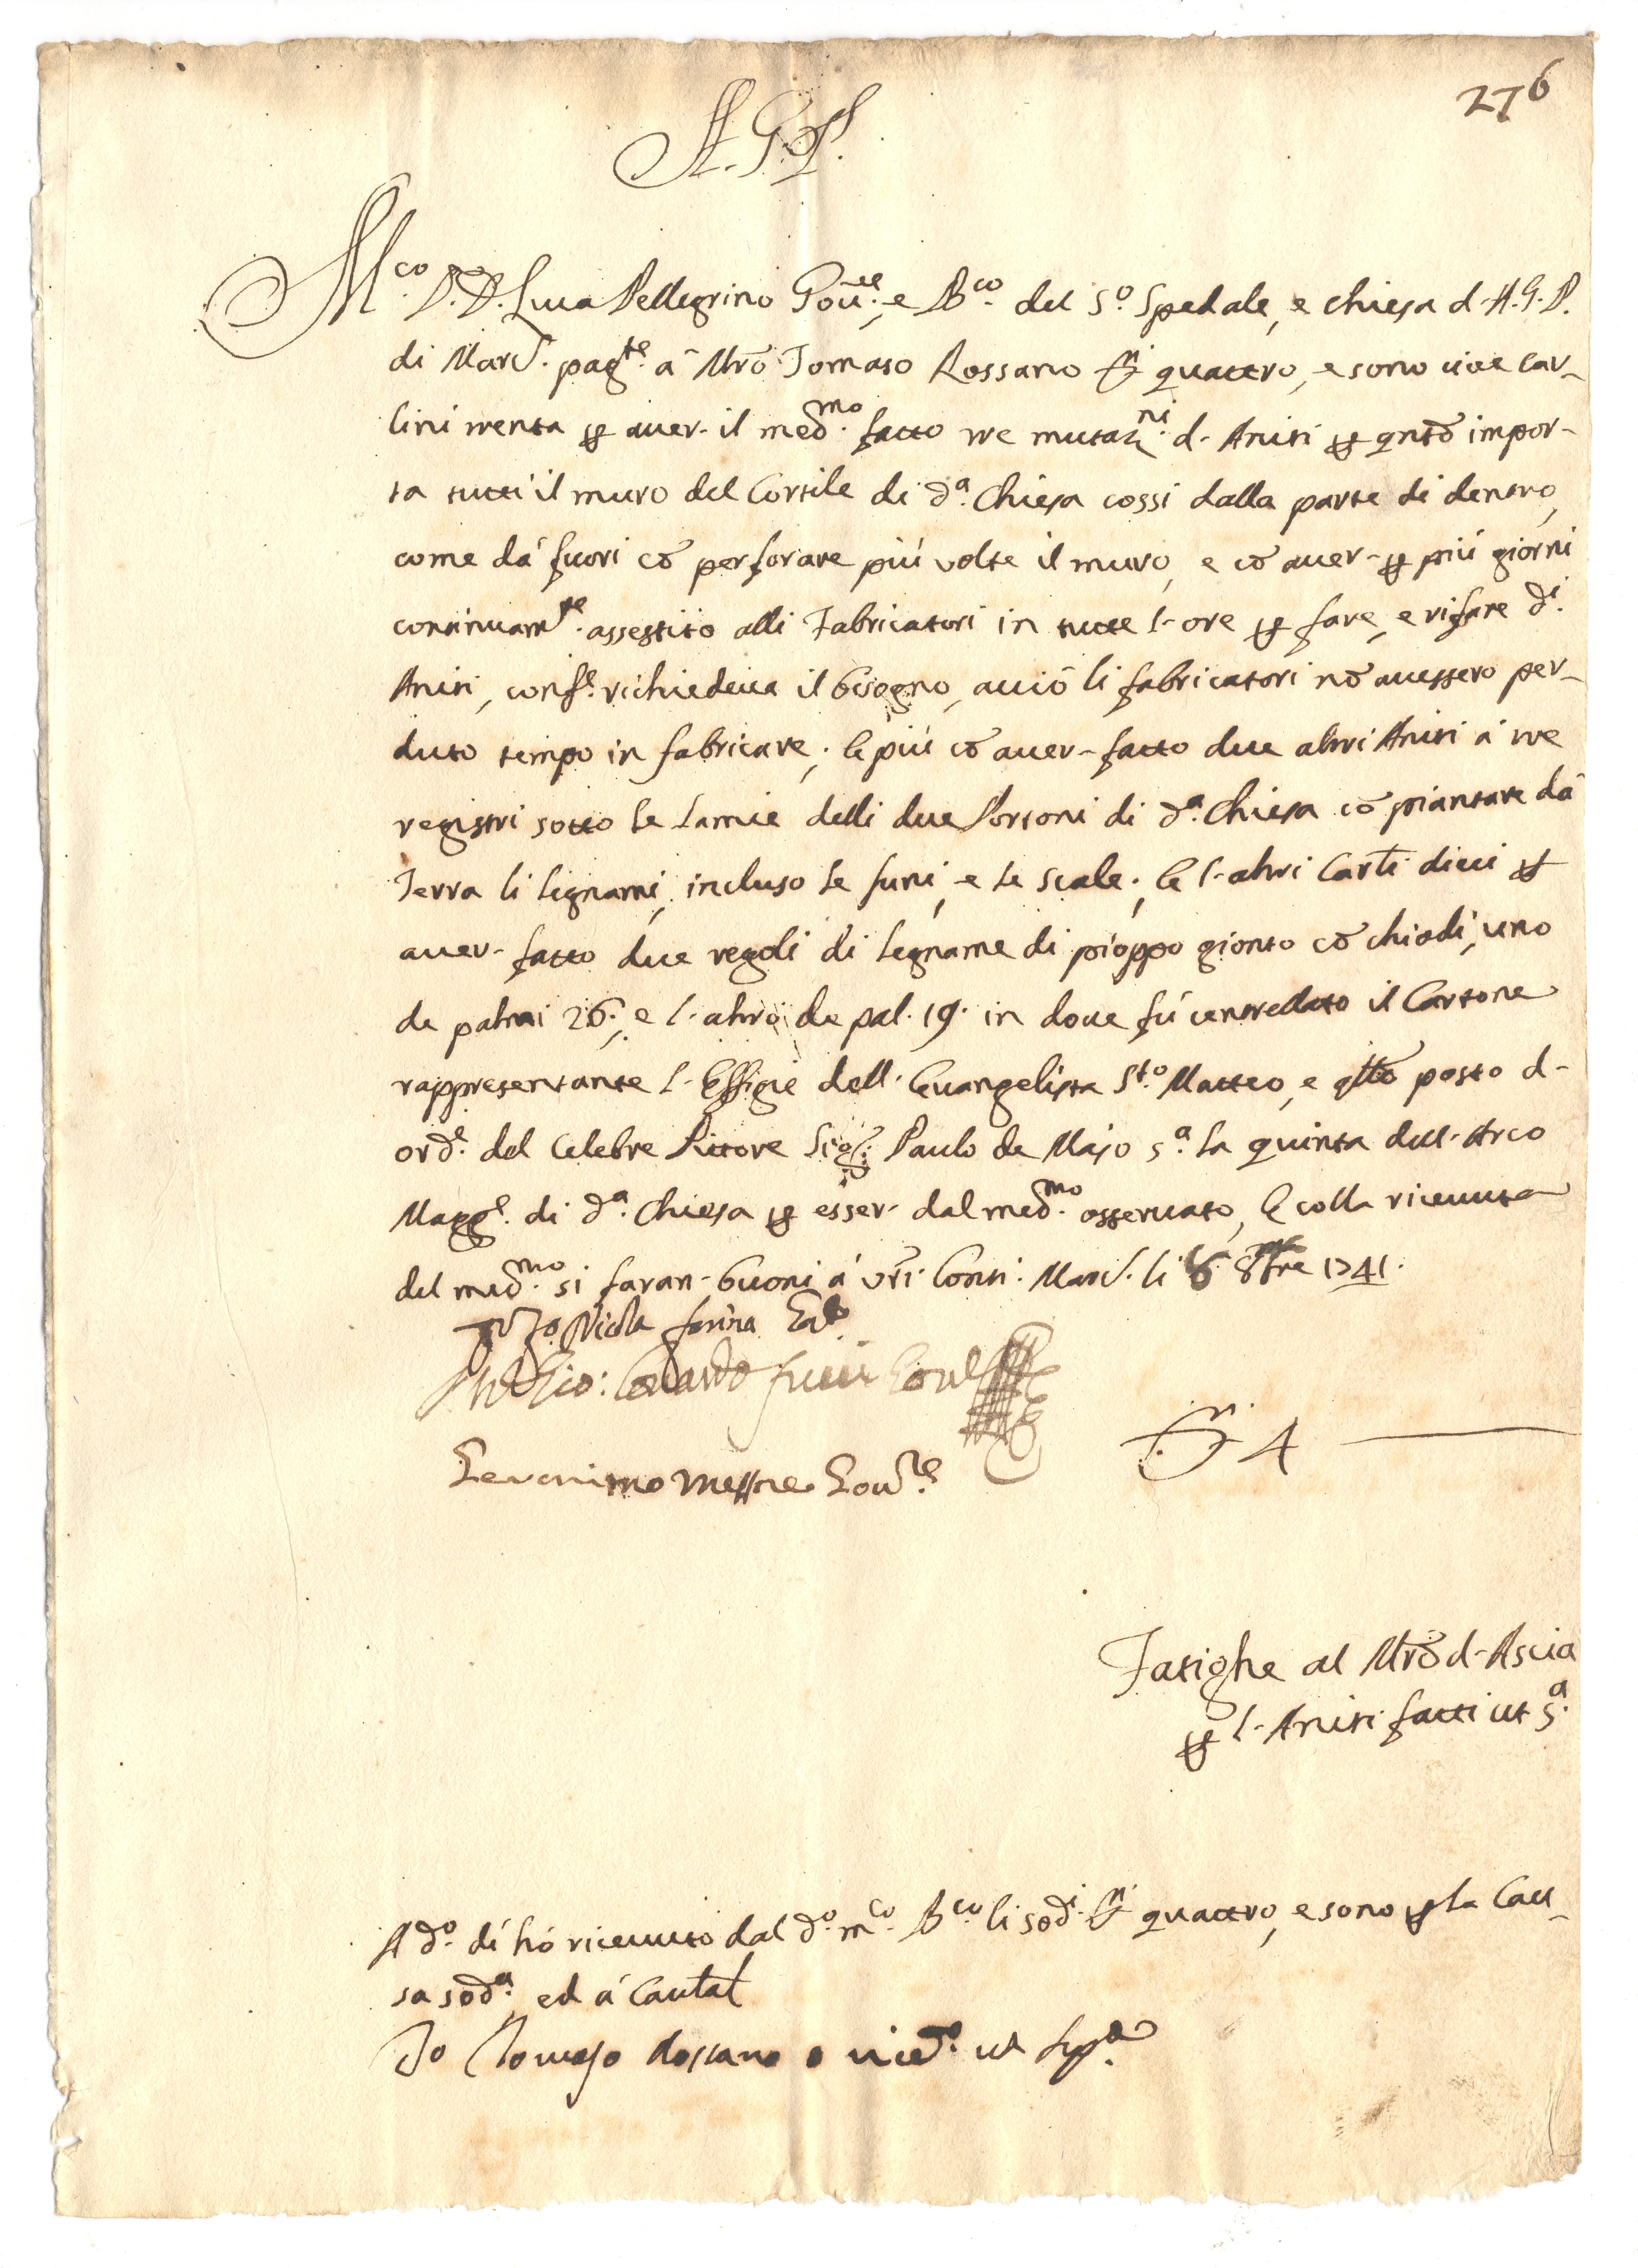 276
A. G. P.
M.co D. D. Luca Pellegrino Gou.re, e B.co del S.o Spedale, e chiesa d- A. G. P.
di Marc. pag.te à Mrõ Tomaso Rossano D.ni quattro, e sono cioe car-
lini trenta p auer- il med.mo fatto tre mutaz.ni d- Aniti p qntõ impor-
ta tutti il muro del Cortile di d.a Chiesa cossi dalla parte di dentro,
come dà fuori cõ perforare più volte il muro, e cõ auer- p più giorni
continuam.te assestito alli Fabricatori in tutte l- ore p fare, e rifare d.i
Aniti, conf.e richiedeua il bisogno, acciò li fabricatori nõ auessero per-
duto tempo in fabricare; E più cõ auer- fatto due altri Aniti à tre
registri sotto le lamie delli due Portoni di d.a Chiesa cõ piantare dà
Terra li lignami, incluso le funi, e le scale; E l- altri Carl.i dieci p
auer- fatto due regoli di legname di pioppo gionto cõ chiodi, uno
de palmi 26., e l- altro de pal. 19. in doue fù centrellato il Cartone
rappresentante l- Effigie dell- Euangelista S.to Matteo, e qllõ posto d-
ord.e del Celebre Pittore Sig.r Paulo de Majo s.a la quinta dell- Arco
Magg.e di d.a Chiesa p esser- dal med.mo osseruato, E colla riceuuta
del med.mo si faran- buoni à vr̃i Conti. Marc. li 6 8bre 1741.
Nicola farina
Gou.
Geronimo Gou.re
D.ni 4
Fatighe al Mrõ d- Ascia
p l- Aniti fatti ut s.a
A d.o dì hò riceuuto dal d.o m.co B.co li sod.i D.ni quattro, e sono p la Cau-
sa sod.a, ed à Cautel
Io Tomaso Rossano o riceu.to ut sup.a